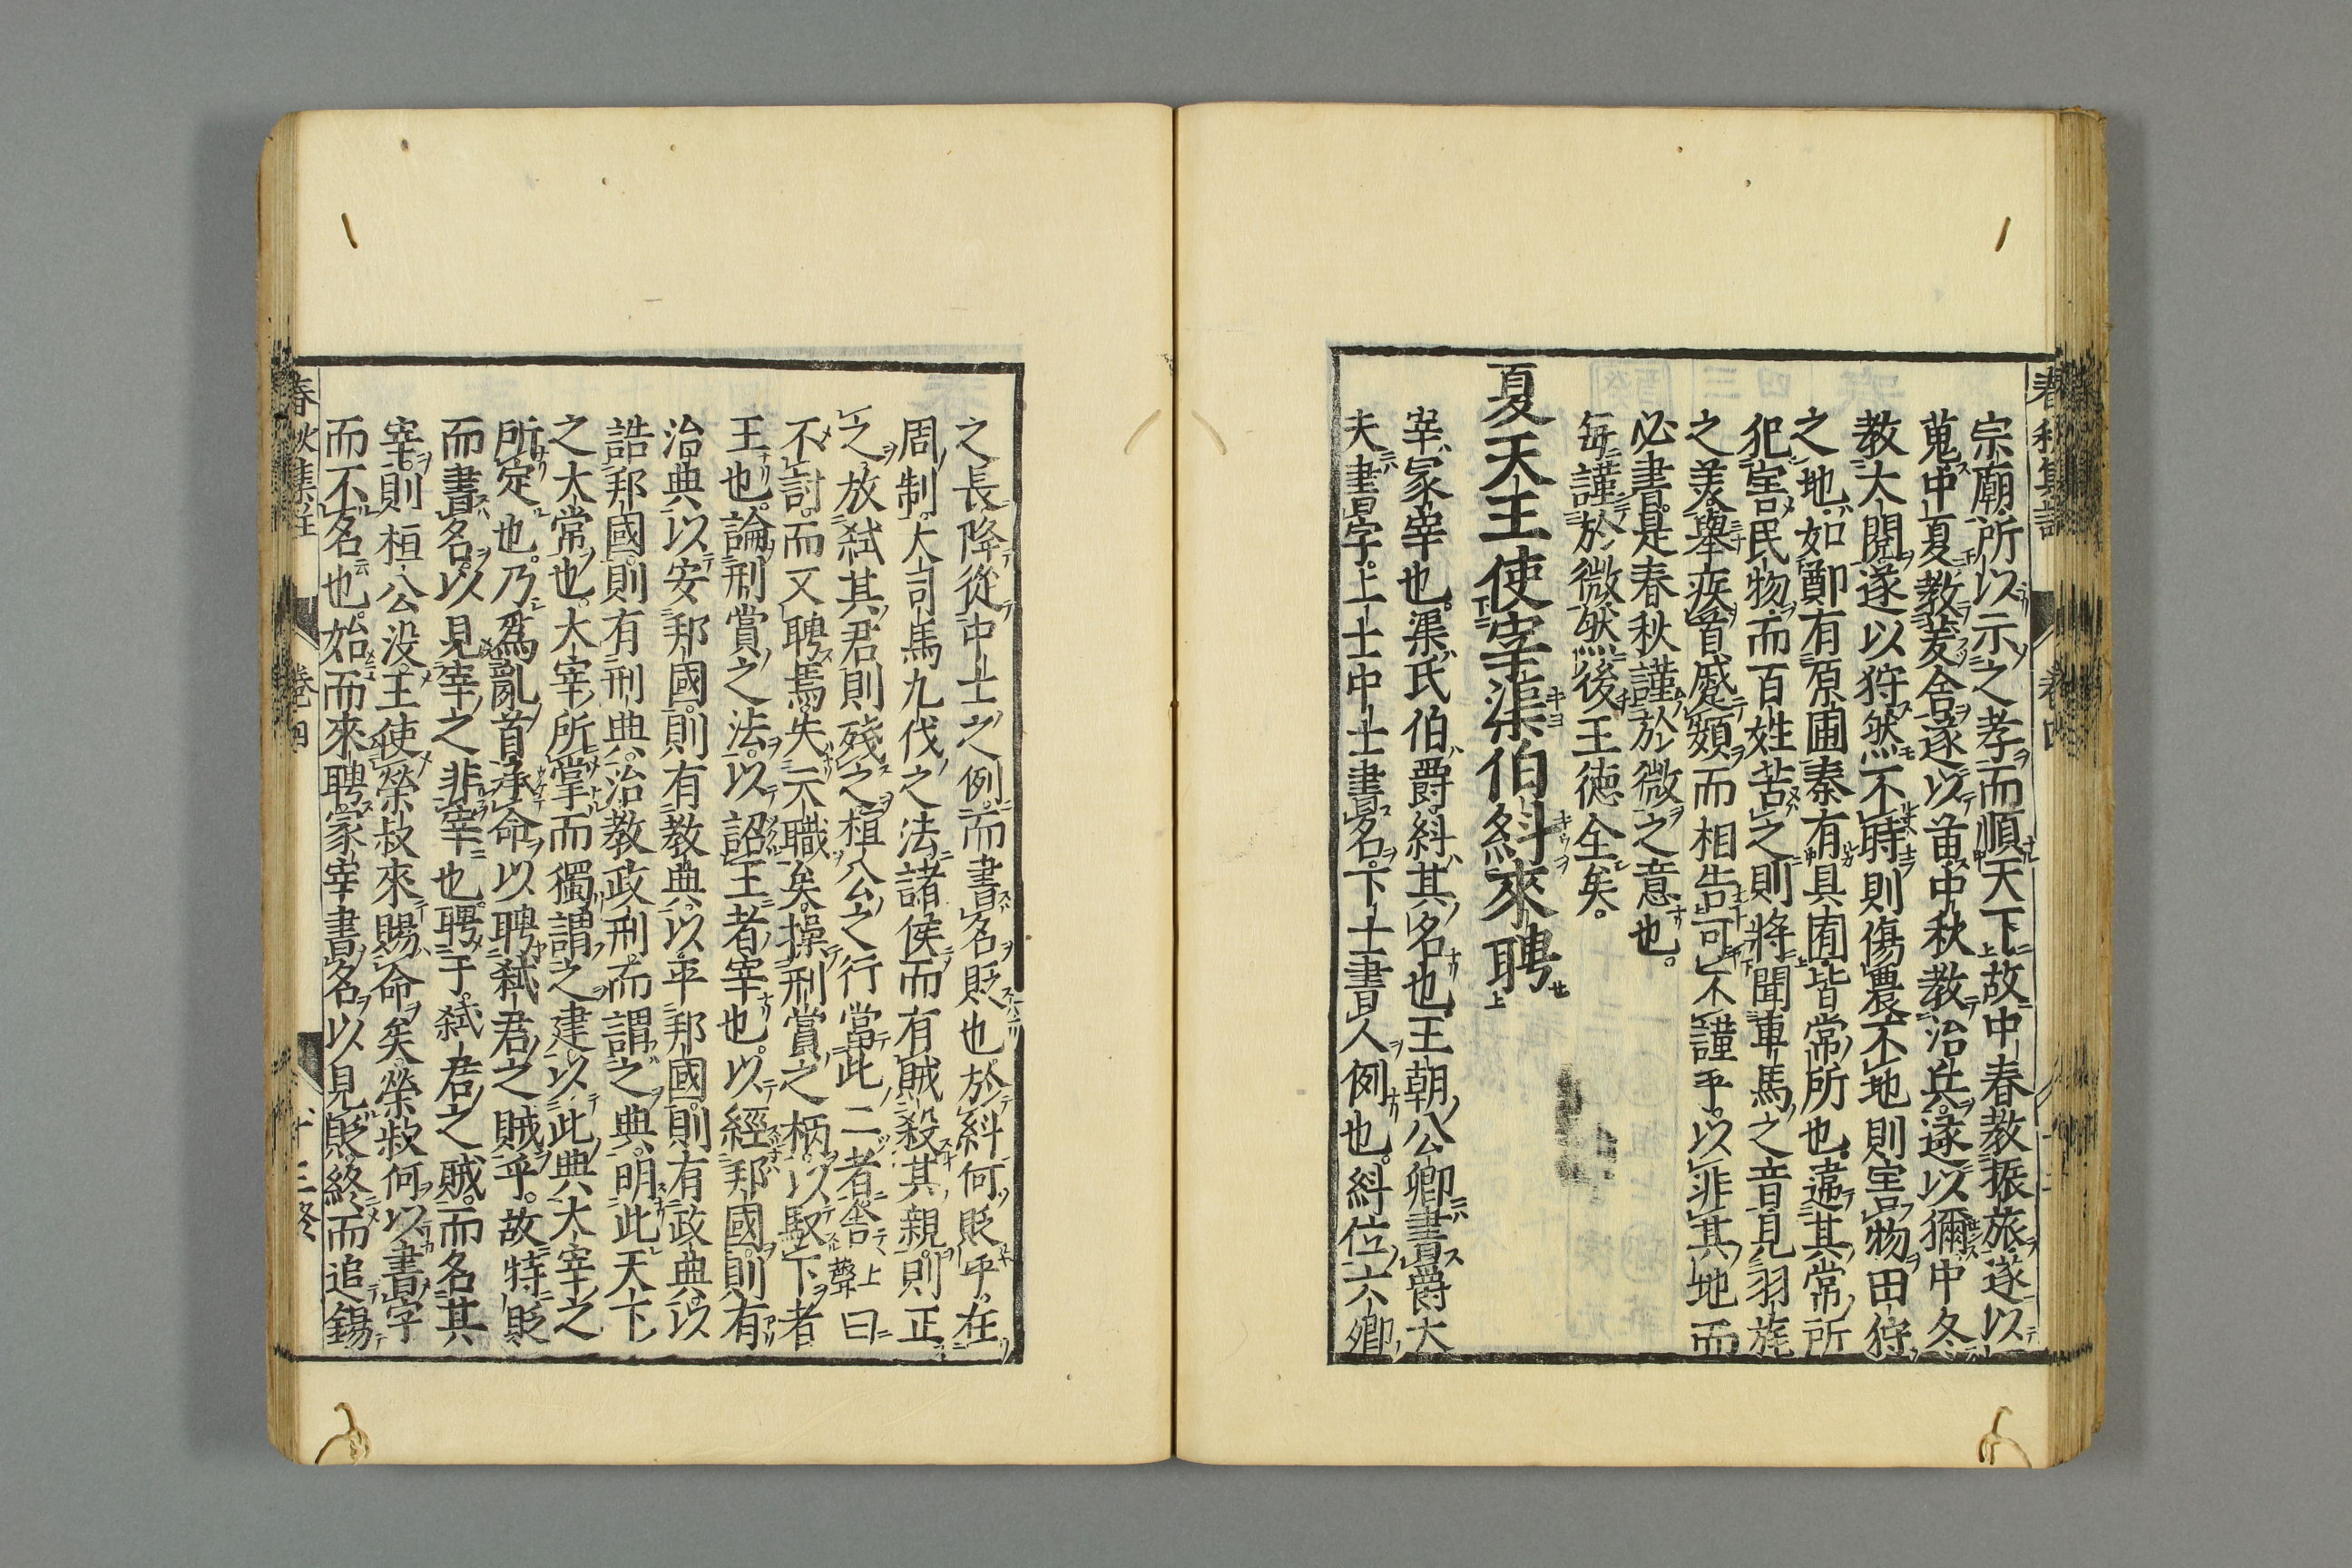 宗廟所以示之孝而順天下故中春教振旅遂以
蒐中夏教茇舍遂以苗中秋教治兵遂以獮中冬
教大閱遂以狩然不時則傷農不地則害物田狩
之地如鄭有原圃秦有具囿皆常所也違其常所
犯害民物而百姓苦之則將聞車馬之音見羽旄
之美舉疾首蹙頞而相告可不謹乎以非其地而
必書是春秋謹於微之意也
每謹於微然後王德全矣
夏天王使宰渠伯糾來聘
宰冢宰也渠氏伯爵糾其名也王朝公卿書爵大
夫書字上士中士書名下士書人例也糾位六卿
之長降從中士之例而書名貶也於糾何貶乎在
周制大司馬九伐之法諸侯而有賊殺其親則正
之放弑其君則殘之桓公之行當此二者舍上聲曰
不討而又聘焉失天職矣操刑賞之柄以馭下者
王也論刑賞之法以詔王者宰也以經邦國則有
治典以安邦國則有教典以平邦國則有政典以
詰邦國則有刑典治教政刑而謂之典明此天下
之大常也大宰所掌而獨謂之建以此典大宰之
所定也乃爲亂首承命以聘弑君之賊乎故特貶
而書名以見宰之非宰也聘于弑君之賊而名其
宰則桓公没王使榮叔來賜命矣榮叔何以書字
而不名也始而來聘冢宰書名以見貶終而追錫
春秋集註 卷四 十三終